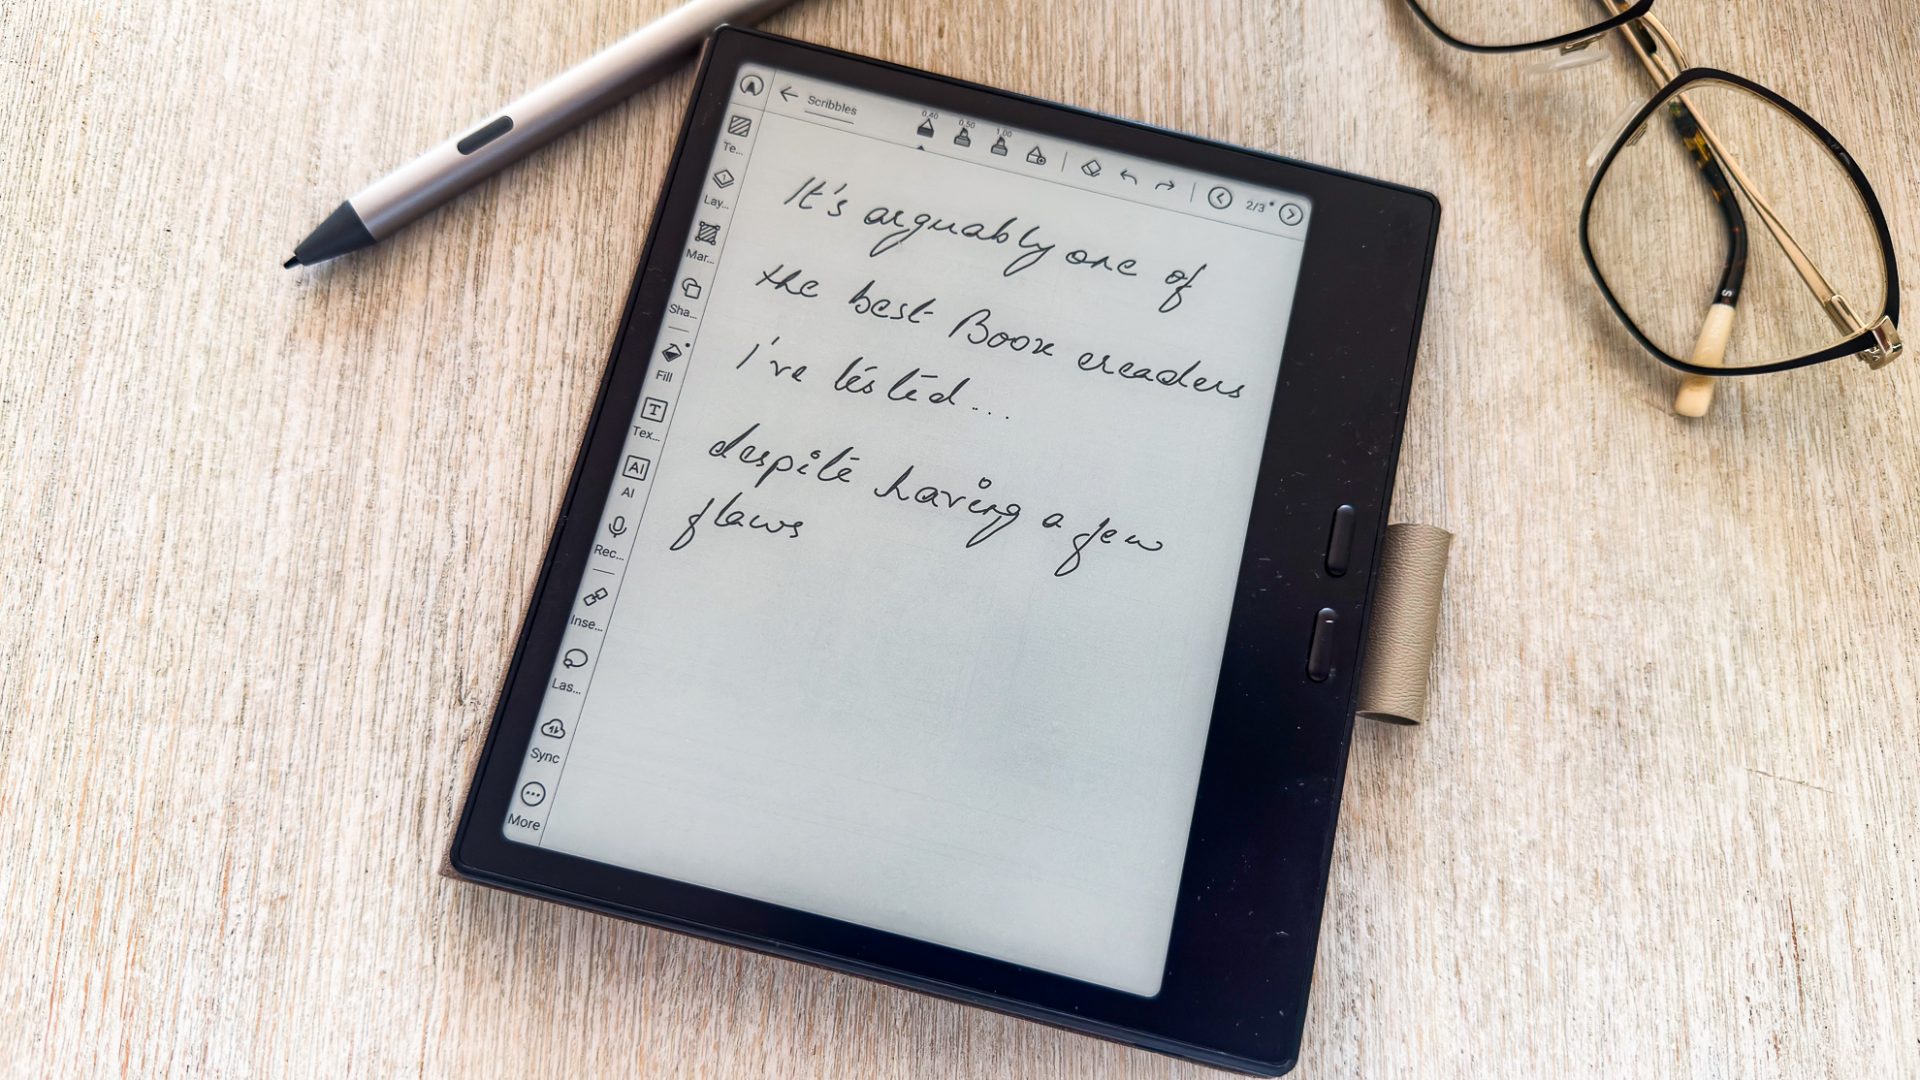 Scribbles
0.40 0.50 1.00
2/3
Te...
Lay...
Mar...
Sha...
Fill
T
Tex...
AI
AI
Rec...
Inse...
Las...
Sync
More
It's arguably one of
the best Boox ereaders
I've tested...
despite having a few
flaws